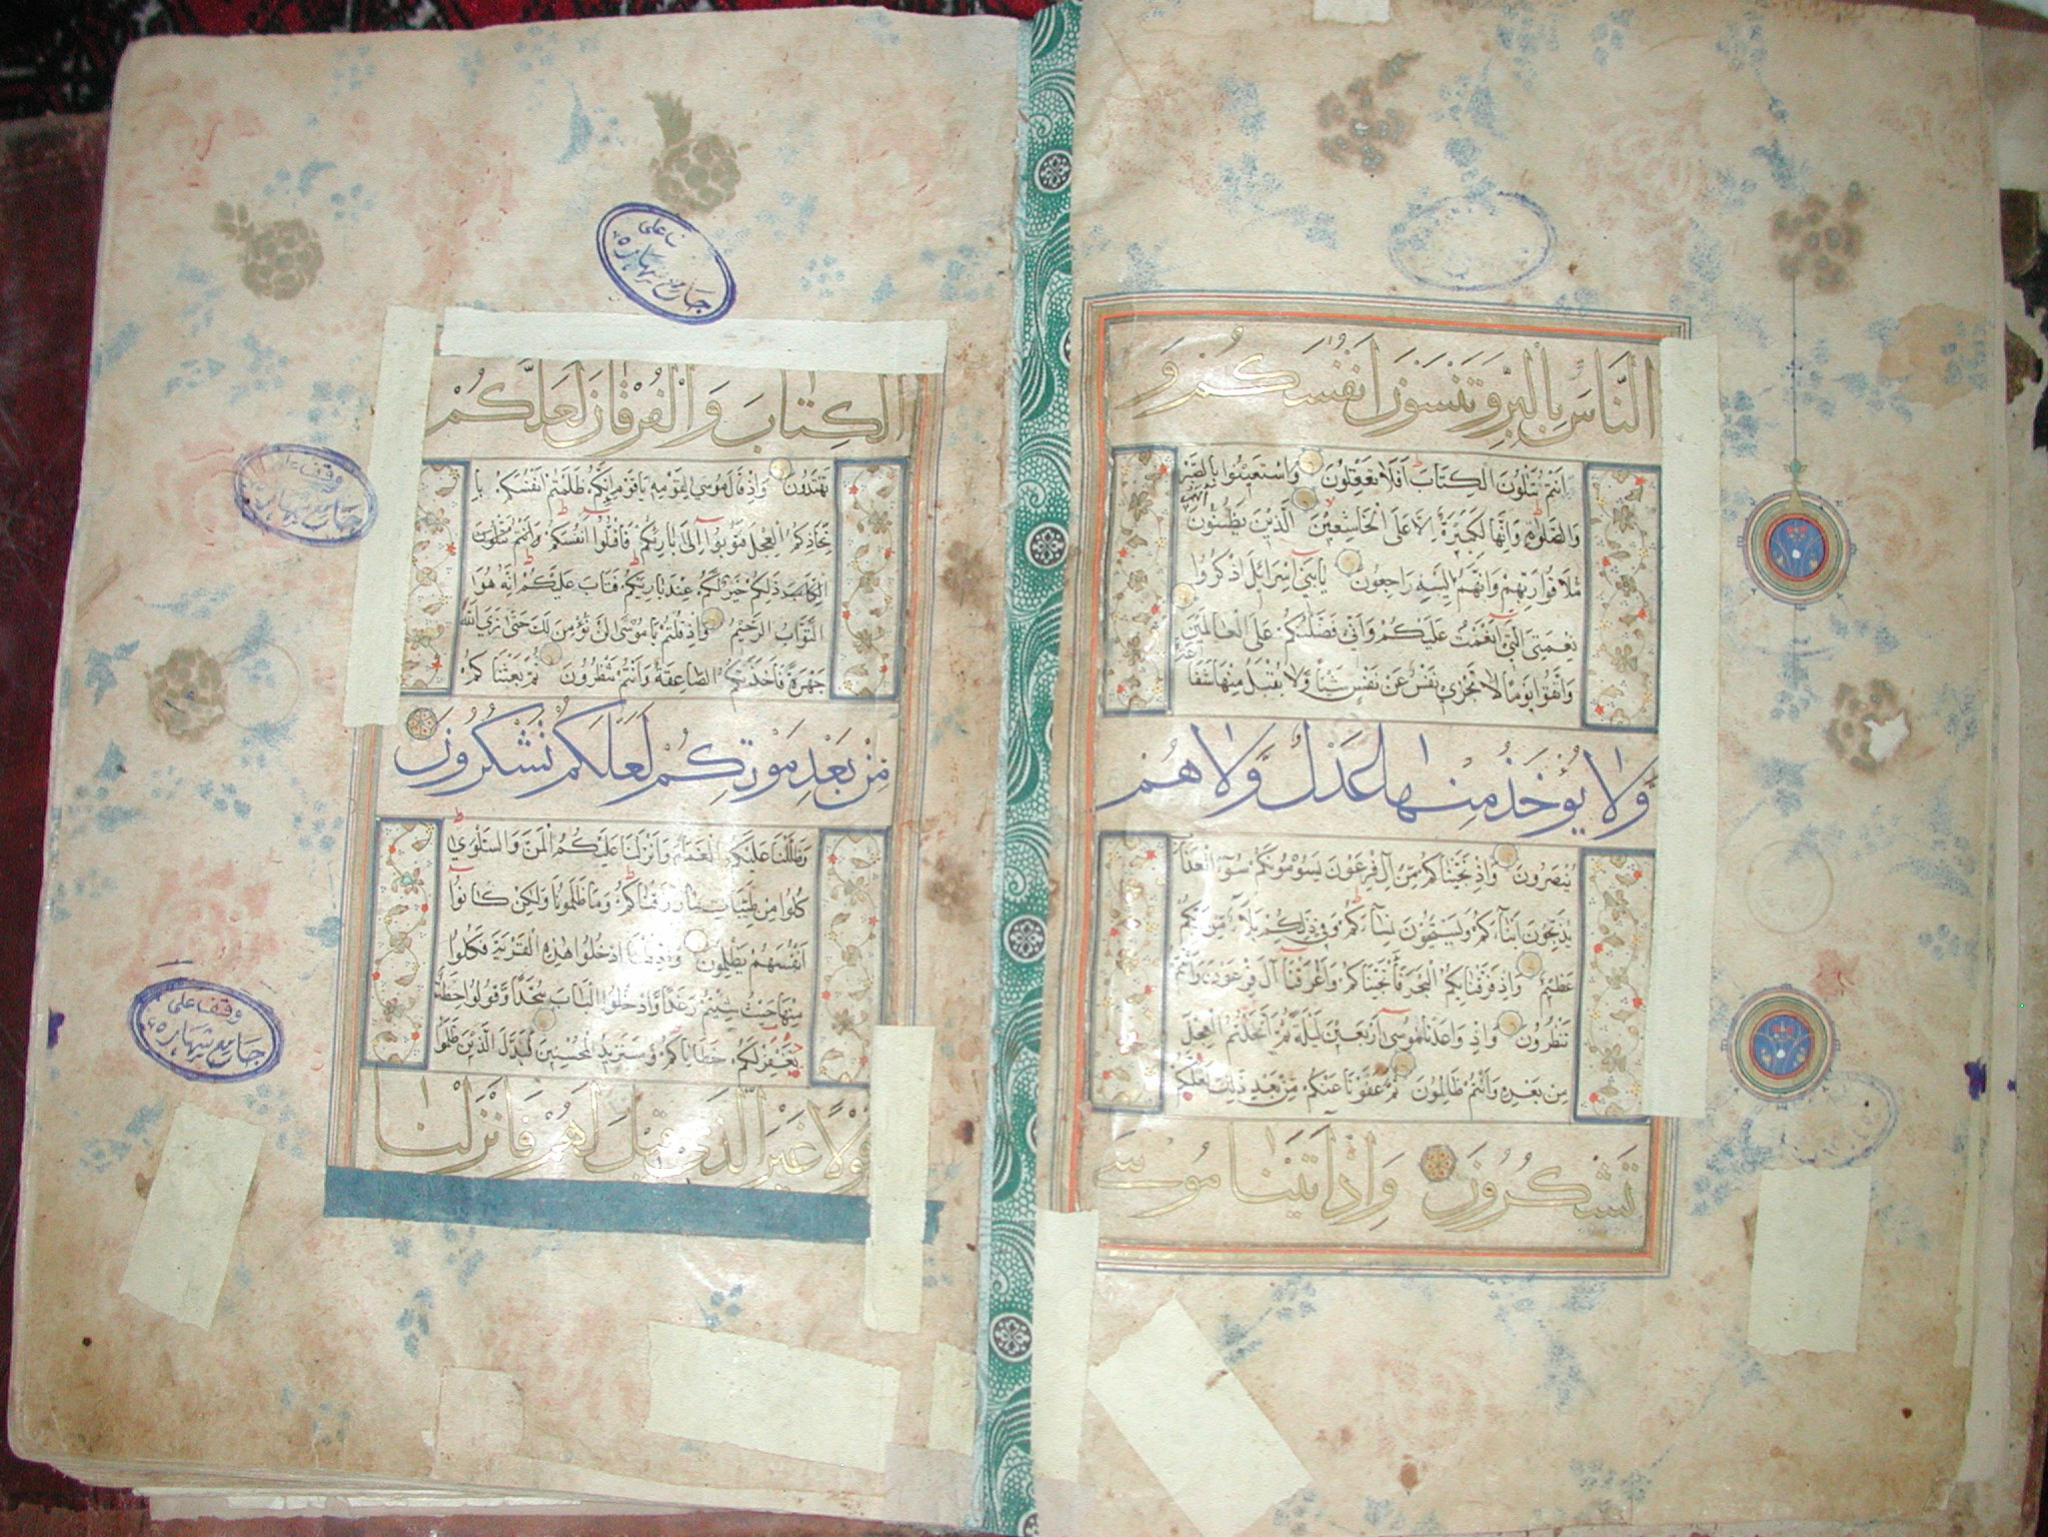 النَّاسَ بِالْبِرِّ وَتَنْسَوْنَ اَنْفُسَكُمْ وَ
اَنْتُمْ تَتْلُونَ الْكِتَابَ اَفَلَا تَعْقِلُونَ وَاسْتَعِينُوا بِالصَّبْرِ
وَالصَّلٰوةِ وَاِنَّهَا لَكَبِيْرَةٌ اِلَّا عَلَى الْخَاشِعِيْنَ الَّذِيْنَ يَظُنُّونَ انهم
مُلَاقُوا رَبِّهِمْ وَاَنَّهُمْ اِلَيْهِ رَاجِعُونَ يَابَنِي اِسْرَائِلَ اذْكُرُوا
نِعْمَتِيَ الَّتِي اَنْعَمْتُ عَلَيْكُمْ وَاَنِّي فَضَّلْتُكُمْ عَلَى الْعَالَمِيْنَ
وَاتَّقُوا يَوْمًا لَا تَجْزِي نَفْسٌ عَنْ نَفْسٍ شَيْئًا وَّلَا يُقْبَلُ مِنْهَا شَفَا عة
وَّلَا يُؤْخَذُ مِنْهَا عَدْلٌ وَّلَا هُمْ
يُنْصَرُونَ وَاِذْ نَجَّيْنَاكُمْ مِّنْ آلِ فِرْعَوْنَ يَسُوْمُونَكُمْ سُوٓءَ الْعَذَابِ
يُذَبِّحُونَ اَبْنَآءَكُمْ وَيَسْتَحْيُونَ نِسَآءَكُمْ وَفِي ذٰلِكُمْ بَلَآءٌ مِّنْ رَبِّكُمْ
عَظِيْمٌ وَاِذْ فَرَقْنَا بِكُمُ الْبَحْرَ فَأَنْجَيْنَاكُمْ وَاَغْرَقْنَا آلَ فِرْعَوْنَ وَاَنْتُمْ
تَنْظُرُونَ وَاِذْ وَاعَدْنَا مُوسَى اَرْبَعِيْنَ لَيْلَةً ثُمَّ اتَّخَذْتُمُ الْعِجْلَ
مِنْ بَعْدِهِ وَاَنْتُمْ ظَالِمُونَ ثُمَّ عَفَوْنَا عَنْكُمْ مِّنْ بَعْدِ ذٰلِكَ لَعَلَّكُمْ
تَشْكُرُوْنَ وَاِذْ اٰتَيْنَا مُوْسَى
الْكِتَابَ وَالْفُرْقَانَ لَعَلَّكُمْ
تَهْتَدُونَ وَاِذْ قَالَ مُوسَى لِقَوْمِهِ يَاقَوْمِ اِنَّكُمْ ظَلَمْتُمْ اَنْفُسَكُمْ بِا
تِّخَاذِكُمُ الْعِجْلَ فَتُوبُوا اِلَى بَارِئِكُمْ فَاقْتُلُوا اَنْفُسَكُمْ وَاَنْتُمْ تَتْلُونَ
الْكِتَابَ ذٰلِكُمْ خَيْرٌ لَّكُمْ عِنْدَ بَارِئِكُمْ فَتَابَ عَلَيْكُمْ اِنَّهُ هُوَا
التَّوَّابُ الرَّحِيْمُ وَاِذْ قُلْتُمْ يَا مُوْسَى لَنْ نُؤْمِنَ لَكَ حَتَّى نَرَى اللّٰهَ
جَهْرَةً فَاَخَذَتْكُمُ الصَّاعِقَةُ وَاَنْتُمْ تَنْظُرُونَ ثُمَّ بَعَثْنَا كُمْ
مِّنْ بَعْدِ مَوْتِكُمْ لَعَلَّكُمْ تَشْكُرُوْنَ
وَظَلَّلْنَا عَلَيْكُمُ الْغَمَامَ وَاَنْزَلْنَا عَلَيْكُمُ الْمَنَّ وَالسَّلْوٰى
كُلُوا مِنْ طَيِّبَاتِ مَا رَزَقْنَاكُمْ وَمَا ظَلَمُونَا وَلٰكِنْ كَانُوا
اَنْفُسَهُمْ يَظْلِمُونَ وَاِذْ قُلْنَا ادْخُلُوا هٰذِهِ الْقَرْيَةَ فَكُلُوا
مِنْهَا حَيْثُ شِئْتُمْ رَغَدًا وَّادْخُلُوا الْبَابَ سُجَّدًا وَّقُولُوا حِطَّةٌ
نَّغْفِرْ لَكُمْ خَطَايَاكُمْ وَسَنَزِيدُ الْمُحْسِنِيْنَ فَبَدَّلَ الَّذِيْنَ ظَلَمُوا
قَوْلًا غَيْرَ الَّذِي قِيْلَ لَهُمْ فَاَنْزَلْنَا
وقفا على
جامع شهاره
وقفا على
جامع شهاره
وقفا على
جامع شهاره